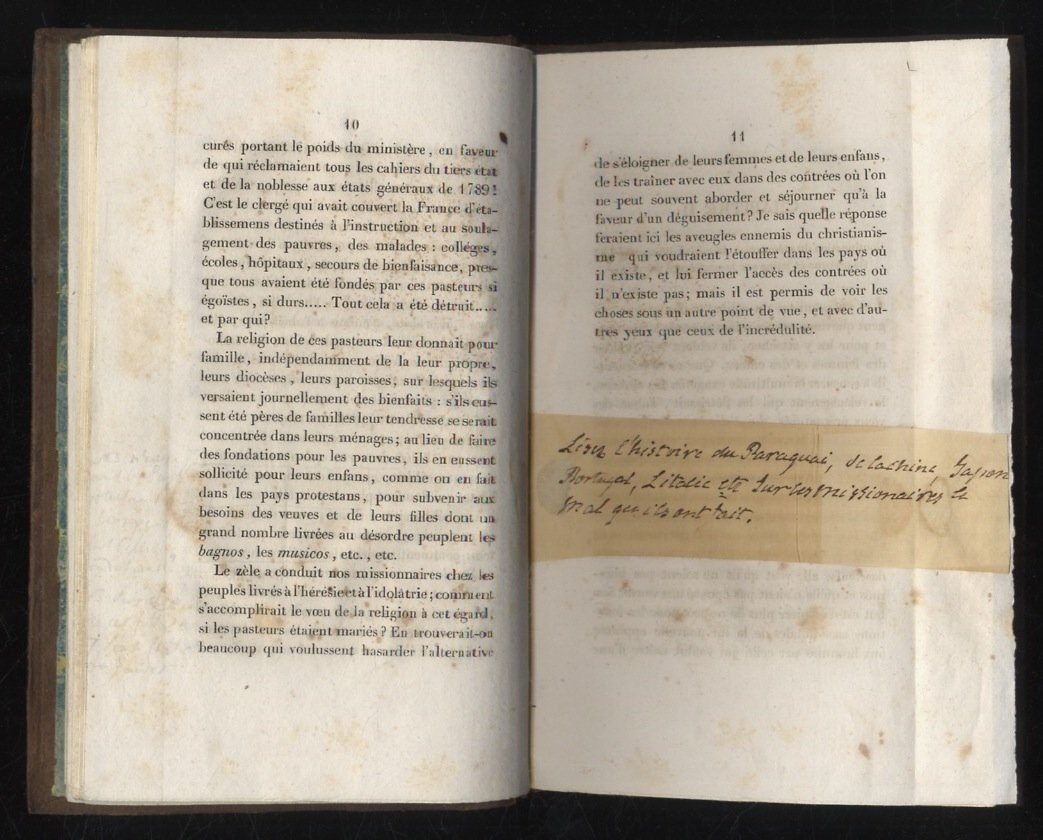 10
curés portant le poids du ministère, en faveur
de qui réclamaient tous les cahiers du tiers état
et de la noblesse aux états généraux de 1789!
C'est le clergé qui avait couvert la France d'éta-
blissemens destinés à l'instruction et au soula-
gement des pauvres, des malades : colléges,
écoles, hôpitaux, secours de bienfaisance, pres-
que tous avaient été fondés par ces pasteurs si
égoïstes, si durs..... Tout cela a été détruit.....
et par qui?
La religion de ces pasteurs leur donnait pour
famille, indépendamment de la leur propre,
leurs diocèses, leurs paroisses, sur lesquels ils
versaient journellement des bienfaits : s'ils eus-
sent été pères de familles leur tendresse se serait
concentrée dans leurs ménages; au lieu de faire
des fondations pour les pauvres, ils en eussent
sollicité pour leurs enfans, comme on en fait
dans les pays protestans, pour subvenir aux
besoins des veuves et de leurs filles dont un
grand nombre livrées au désordre peuplent les
bagnos, les musicos, etc., etc.
Le zèle a conduit nos missionnaires chez les
peuples livrés à l'hérésie et à l'idolâtrie; comment
s'accomplirait le vœu de la religion à cet égard,
si les pasteurs étaient mariés? En trouverait-on
beaucoup qui voulussent hasarder l'alternative
11
de s'éloigner de leurs femmes et de leurs enfans,
de les traîner avec eux dans des contrées où l'on
ne peut souvent aborder et séjourner qu'à la
faveur d'un déguisement? Je sais quelle réponse
feraient ici les aveugles ennemis du christianis-
me qui voudraient l'étouffer dans les pays où
il existe, et lui fermer l'accès des contrées où
il n'existe pas; mais il est permis de voir les
choses sous un autre point de vue, et avec d'au-
tres yeux que ceux de l'incrédulité.
Lisez l'histoire du Paraguai, de lachine, Japon
Portugal, L'italie etc sur les missionaires le
mal qu'ils ont fait.